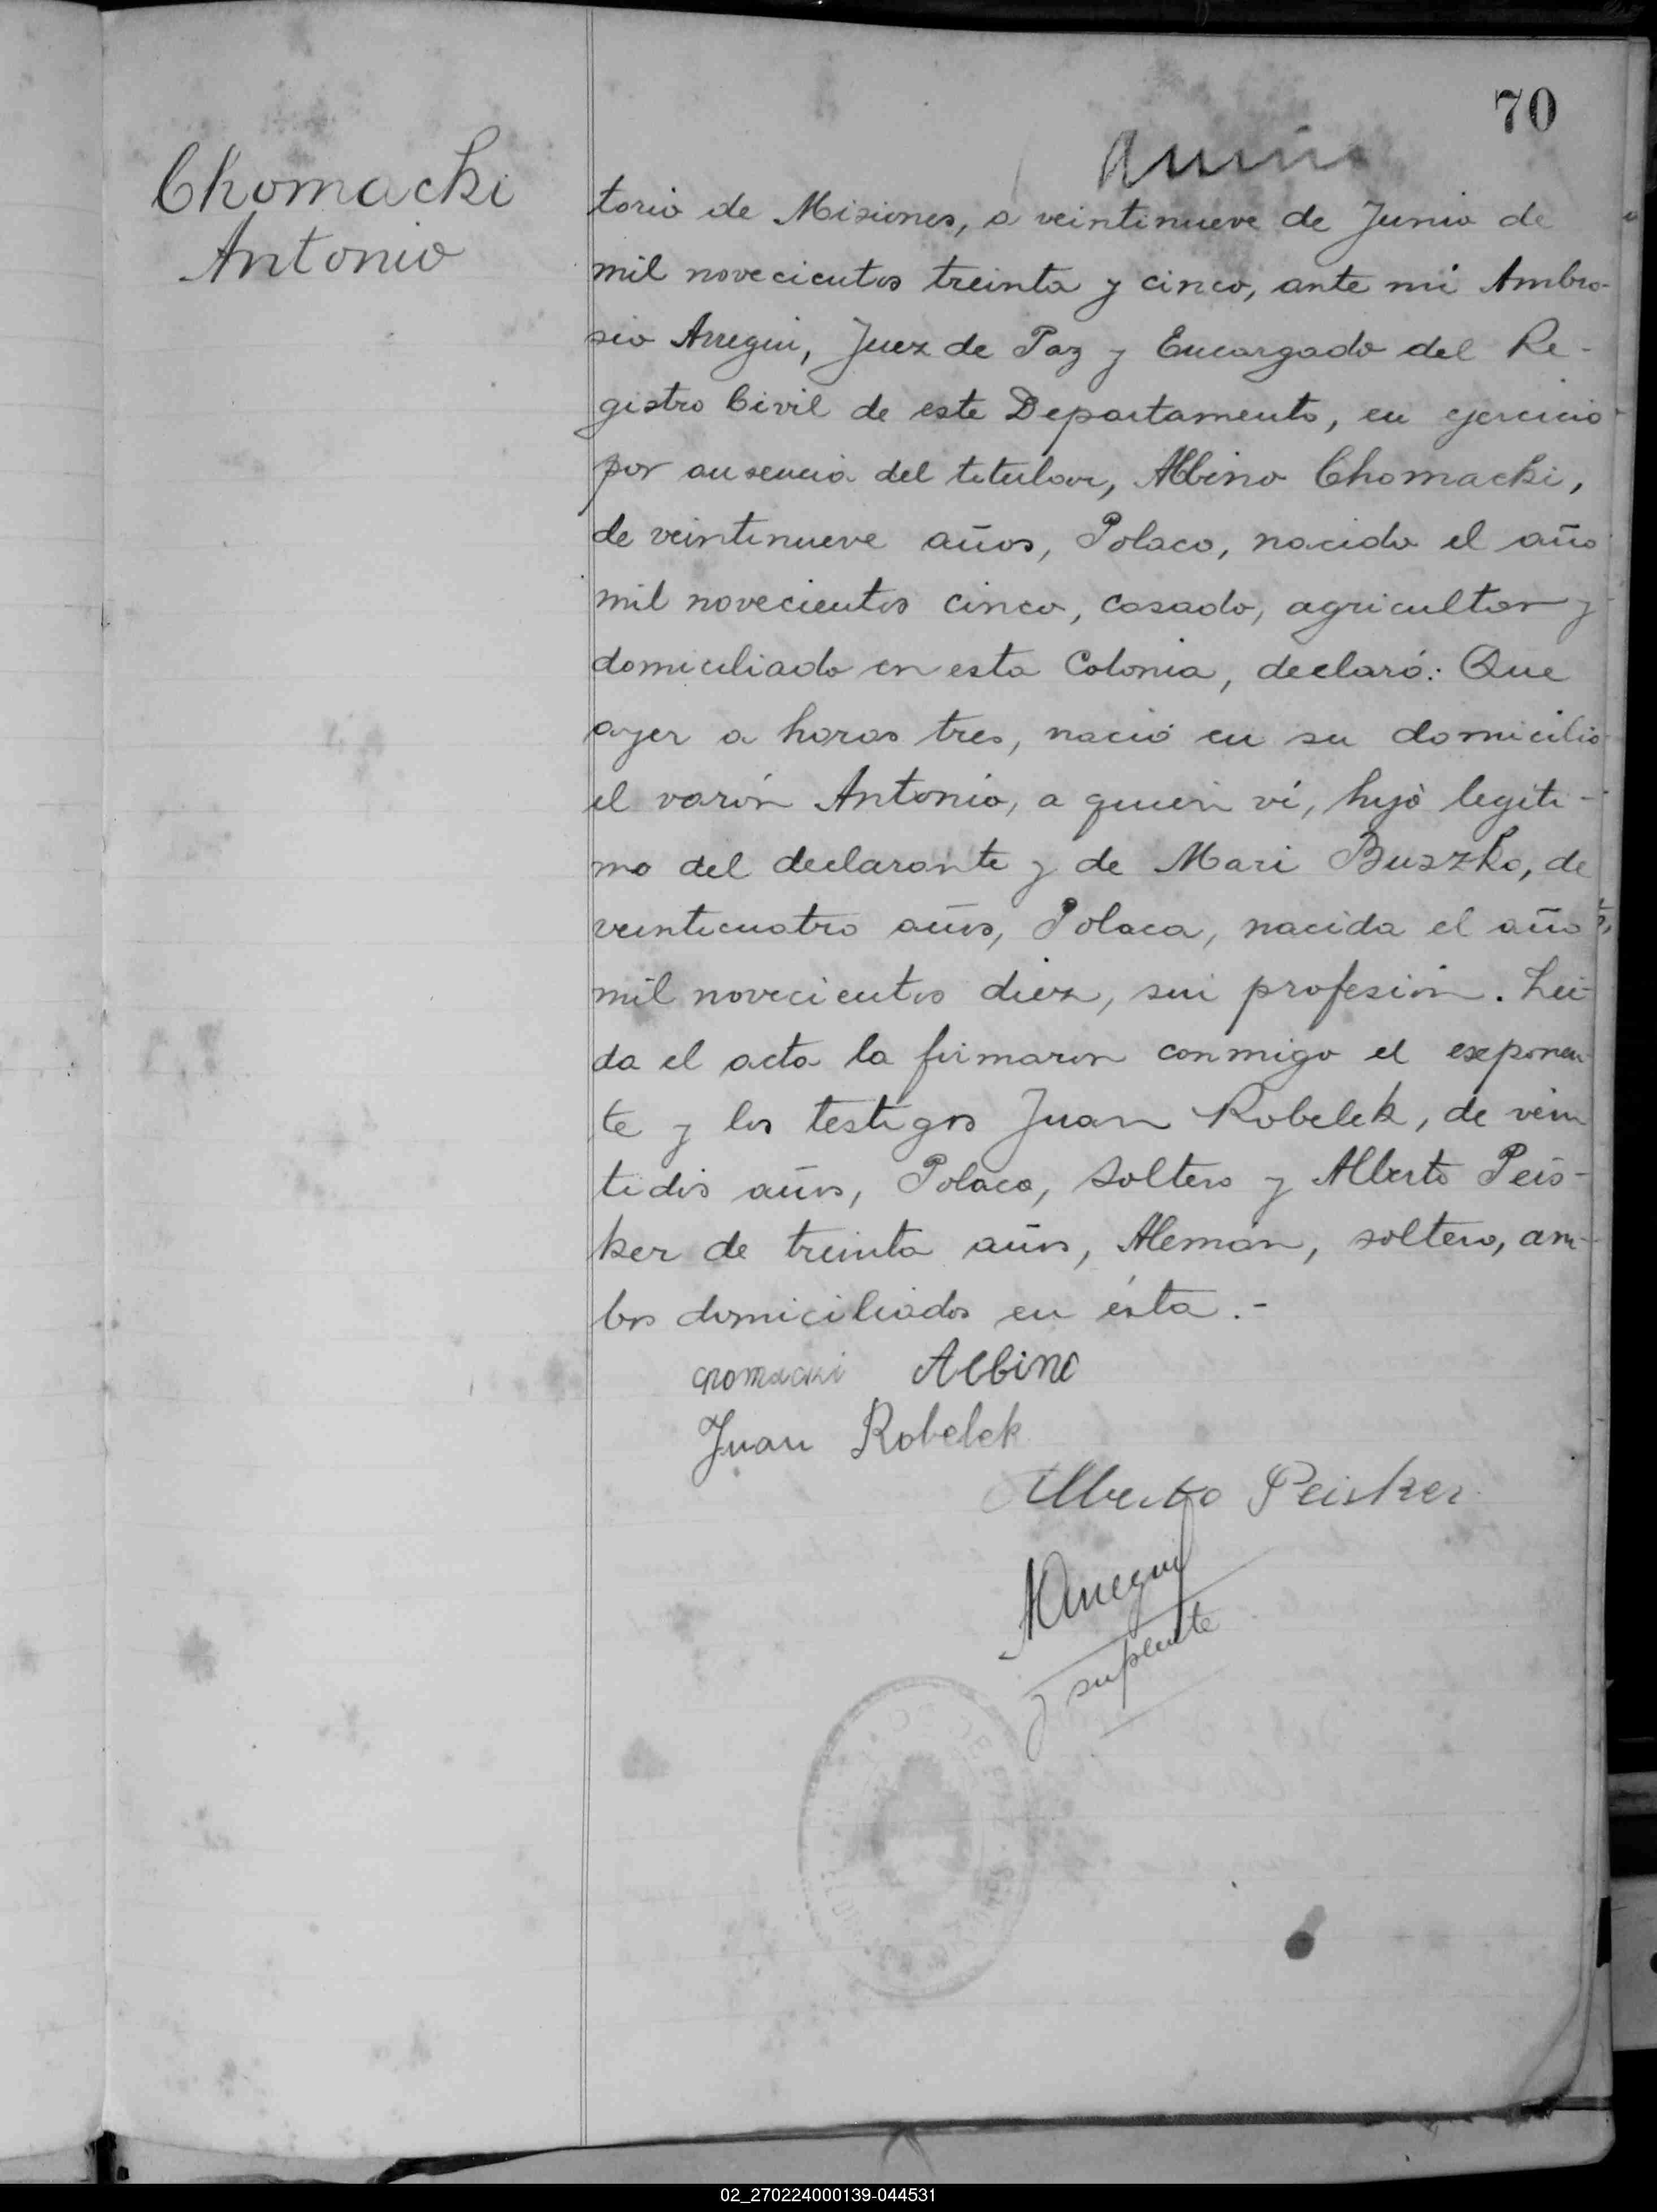 70
Chomacki
Antonio
torio de Misiones, a veintinueve de Junio de
mil novecientos treinta y cinco, ante mi Ambro-
sio Arregui, Juez de Paz y Encargado del Re-
gistro Civil de este Departamento, en ejercicio
por ausencia del titular, Albino Chomacki,
de veintinueve años, Polaco, nacido el año
mil novecientos cinco, casado, agricultor y
domiciliado en esta Colonia, declaró: Que
ayer a horas tres, nació en su domicilio
el varón Antonio, a quien ví, hijo legíti-
mo del declarante y de Mari Buszko, de
veinticuatro años, Polaca, nacida el año
mil novecientos diez, sin profesión. Leí-
da el acta la firmaron conmigo el exponen
te y los testigos Juan Robelek, de vein
tidos años, Polaco, soltero y Alberto Peis-
ker de treinta años, Alemán, soltero, am-
bos domiciliados en ésta.-
Chomacki Albino
Juan Robelek
Alberto Peisker
AArregui
y suplente
02_270224000139-044531